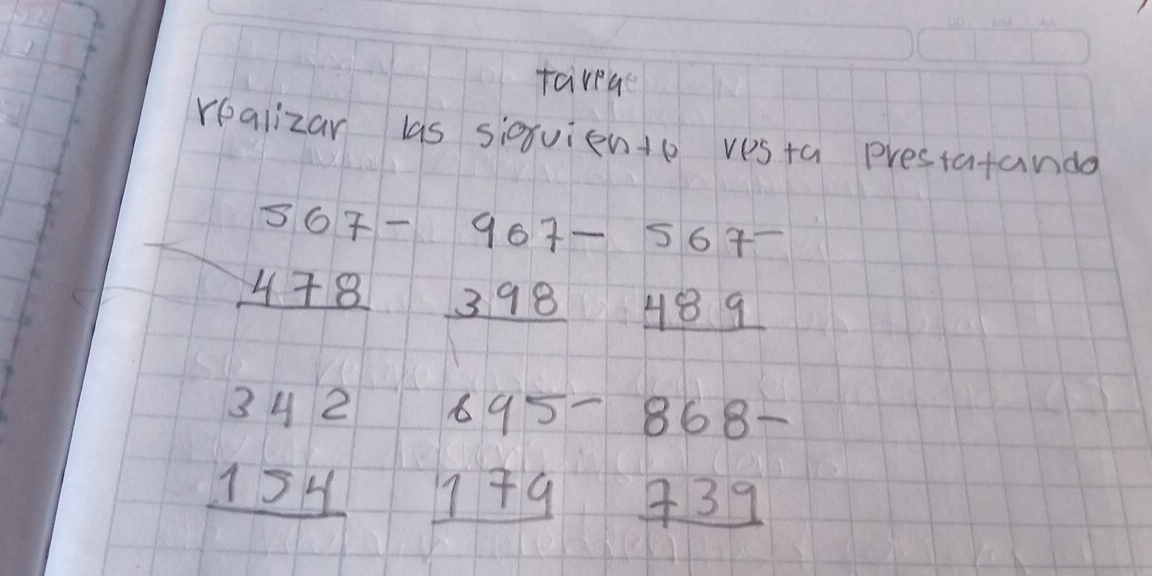 tarea
realizar las siguiente resta prestatando
567- 967- 567-
478 398 489
342 695- 868-
154 179 739